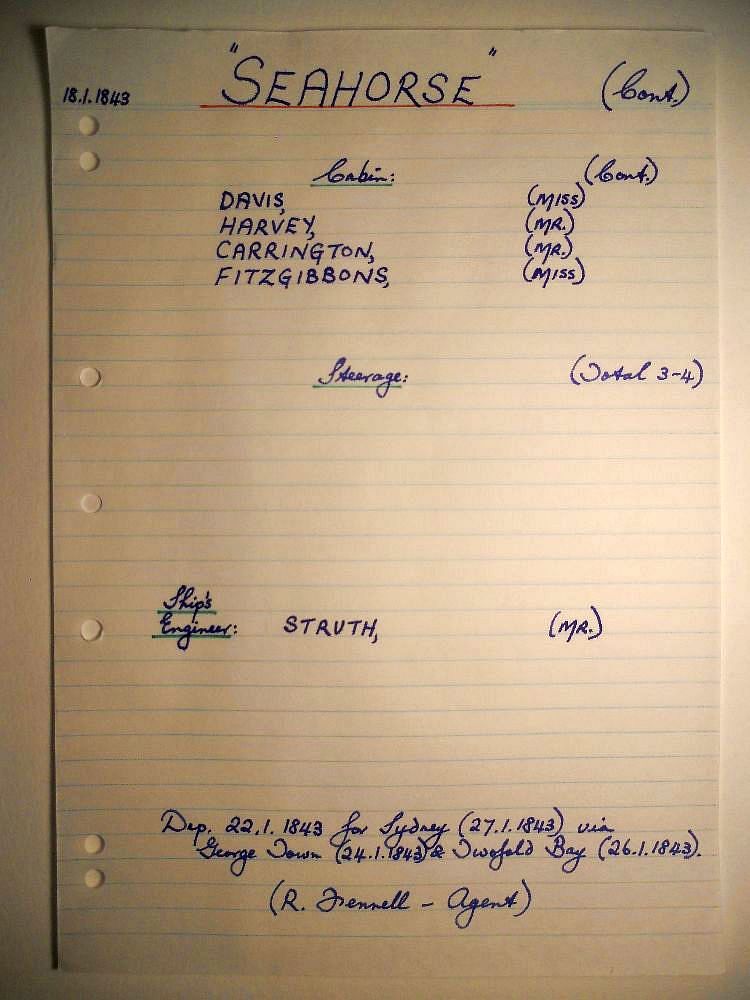 18.1.1843 "SEAHORSE" (Cont.)
Cabin: (Cont.)
DAVIS, (MISS)
HARVEY, (MR.)
CARRINGTON, (MR.)
FITZGIBBONS, (MISS)
Steerage: (Total 3-4)
Ship's
Engineer: STRUTH, (MR.)
Dep. 22.1.1843 for Sydney (27.1.1843) via
George Town (24.1.1843) & Twofold Bay (26.1.1843).
(R. Fennell - Agent)